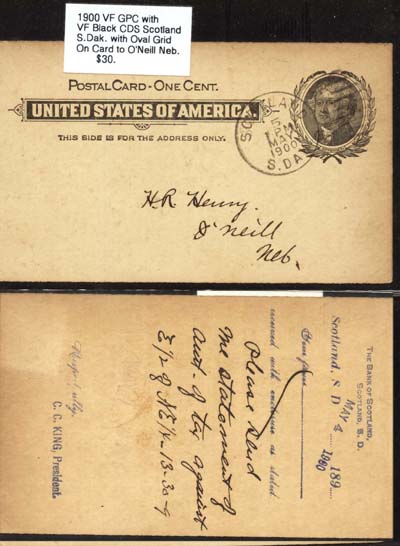 1900 VF GPC with
VF Black CDS Scotland
S.Dak. with Oval Grid
On Card to O'Neill Neb.
$30.
POSTAL CARD - ONE CENT.
UNITED STATES OF AMERICA.
THIS SIDE IS FOR THE ADDRESS ONLY.
SCOTLAND
5
PM
MAY
1900
S.DA
H.R. Henry.
O'neill
Neb.
THE BANK OF SCOTLAND,
SCOTLAND, S. D.
MAY 4
Scotland, S D 189
1900
Your favor
received with enclosures as stated
Please send
me statement of
amt. of tax against
E/2 of NE/4-13-30-9
Respectfully,
C. C. KING, President.